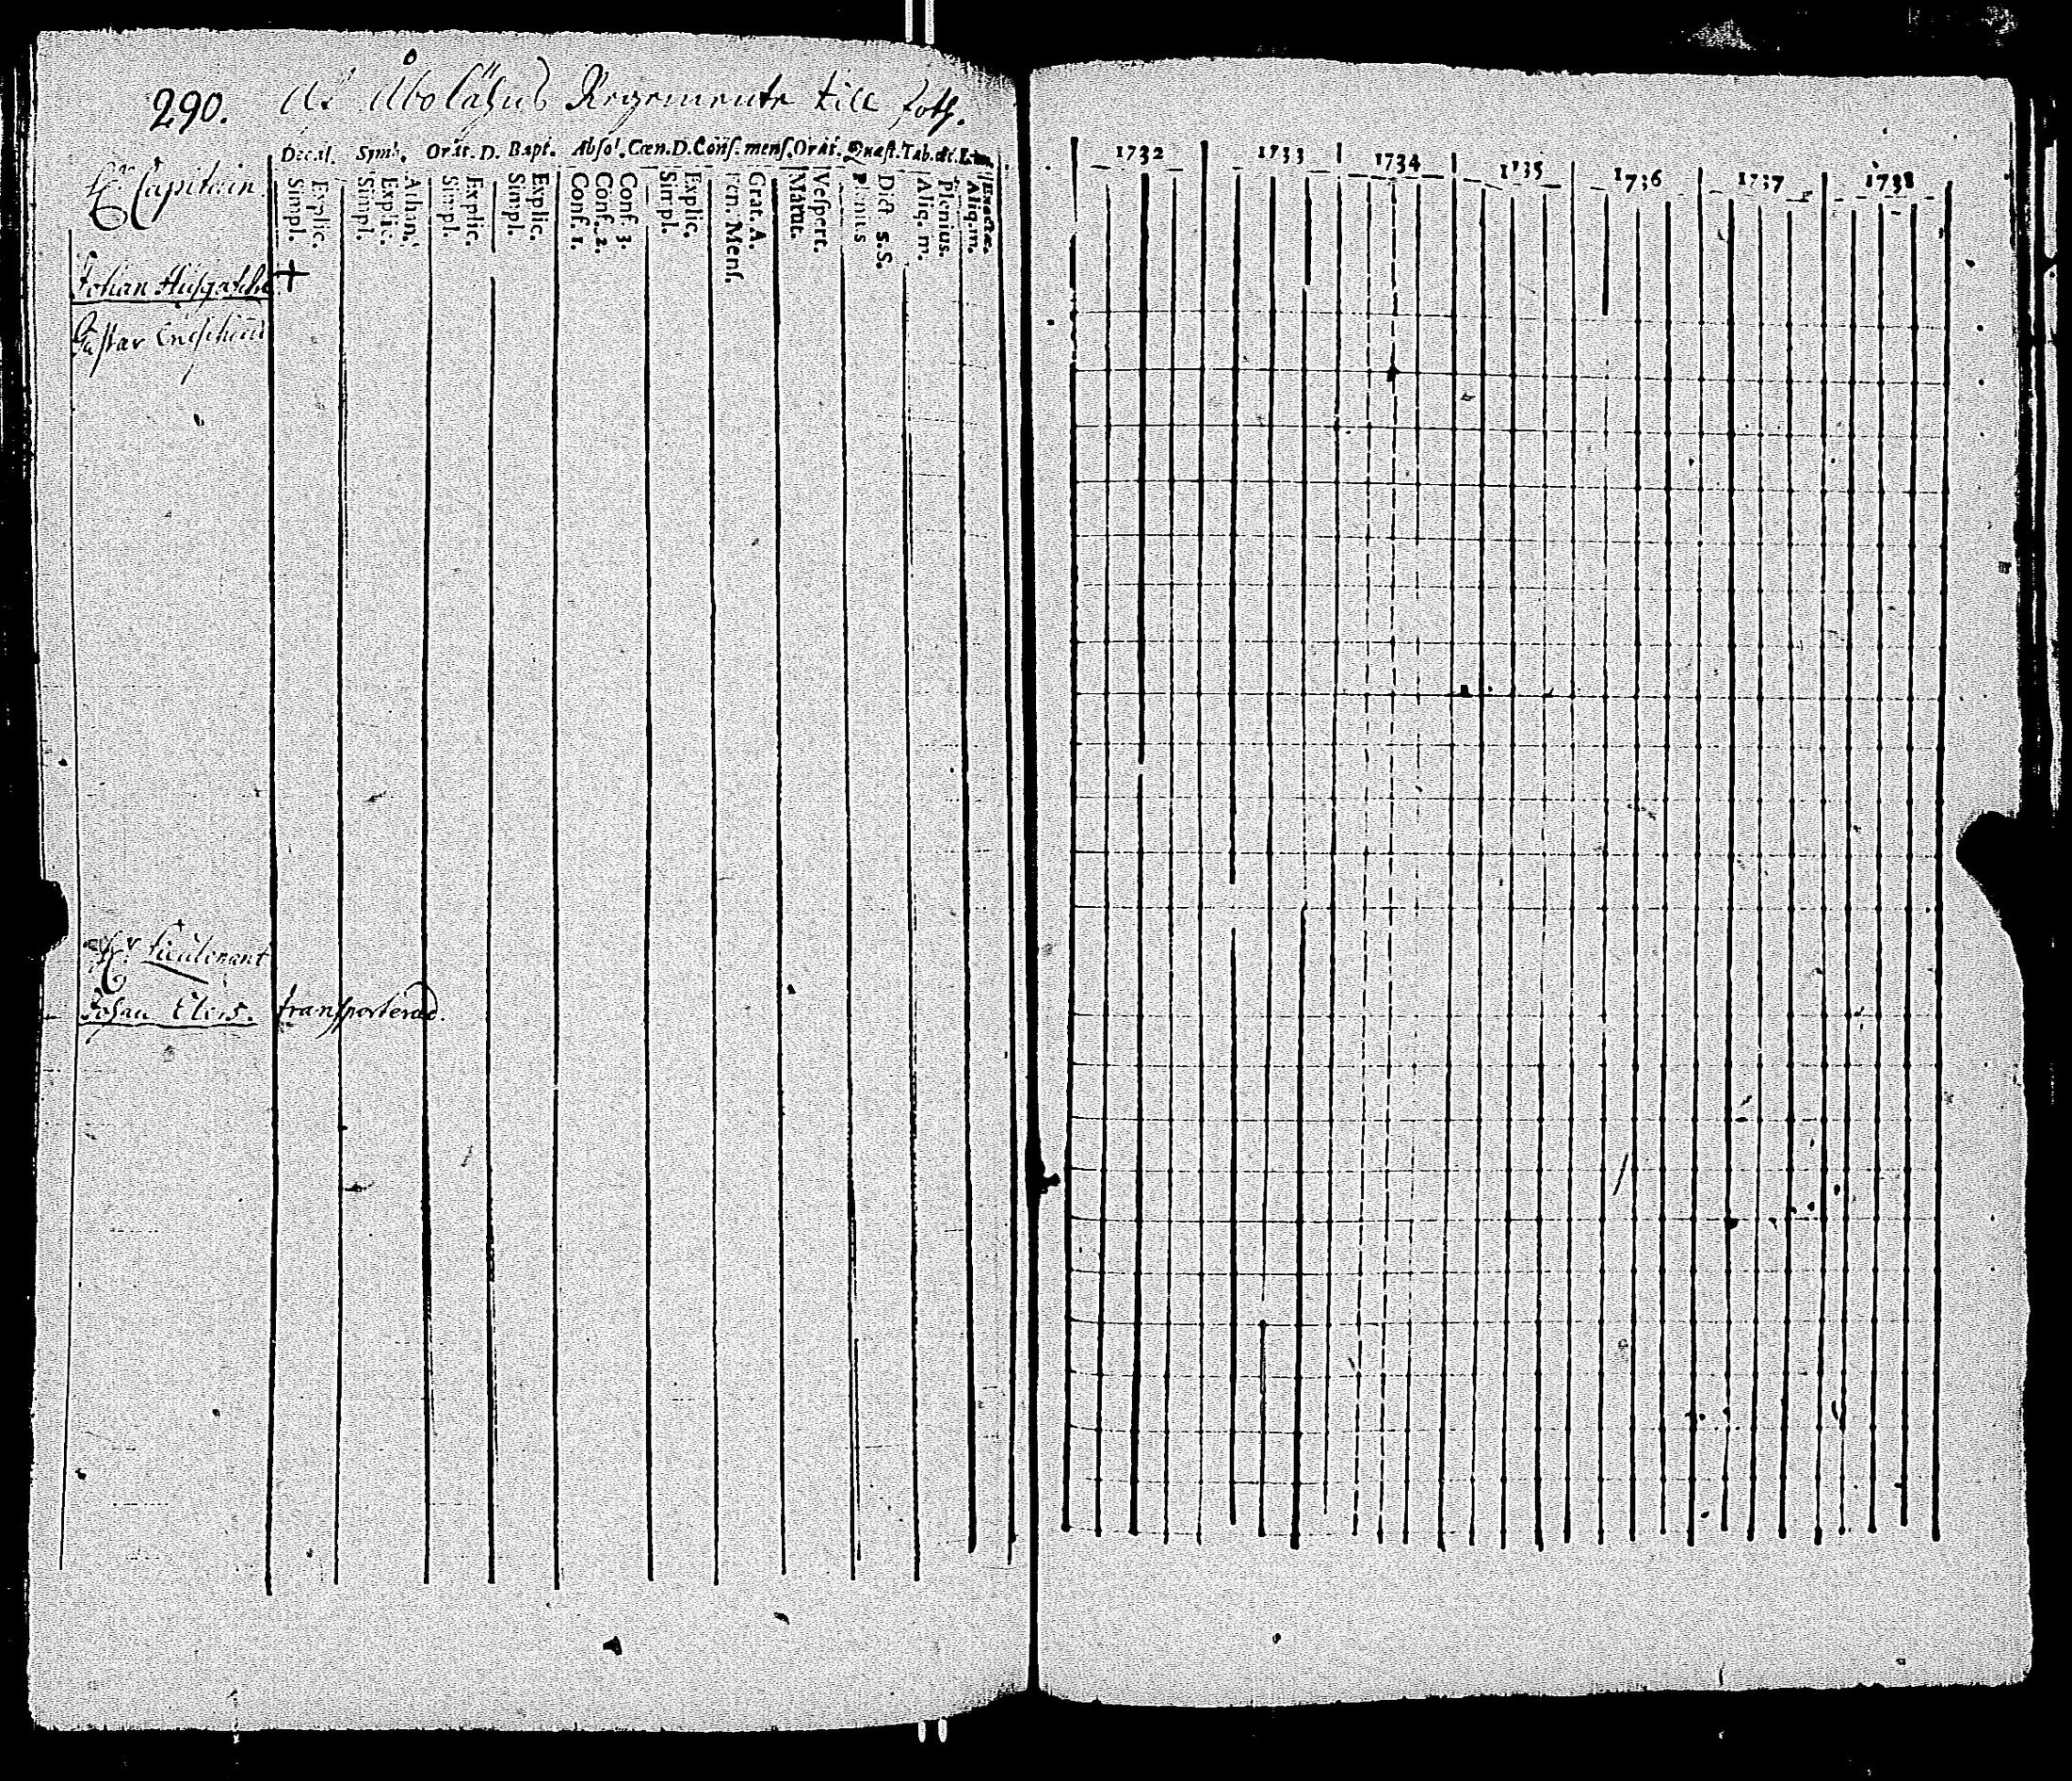 290. Af Åbo Lähns Regemente till foth.
Decal. Symb. Orat. D. Bapt. Absol. Cœn. D. Conf. mens. Orat. Quæst. Tab. &c.
Simpl. Explic. Simpl. Explic. Athan. Simpl. Explic. Simpl. Explic. Conf. 1. Conf. 2. Conf. 3. Simpl. Explic. Ben. Mens. Grat. A. Matut. Vespert. Plenius Dict. S.S. Aliq. m. Plenius. Aliq. m. Exactæ.
Hr Capitain
Johan +
Gustav
Hr Lieutenant
Johan Elers. transporterad.
1732 1733 1734 1735 1736 1737 1738